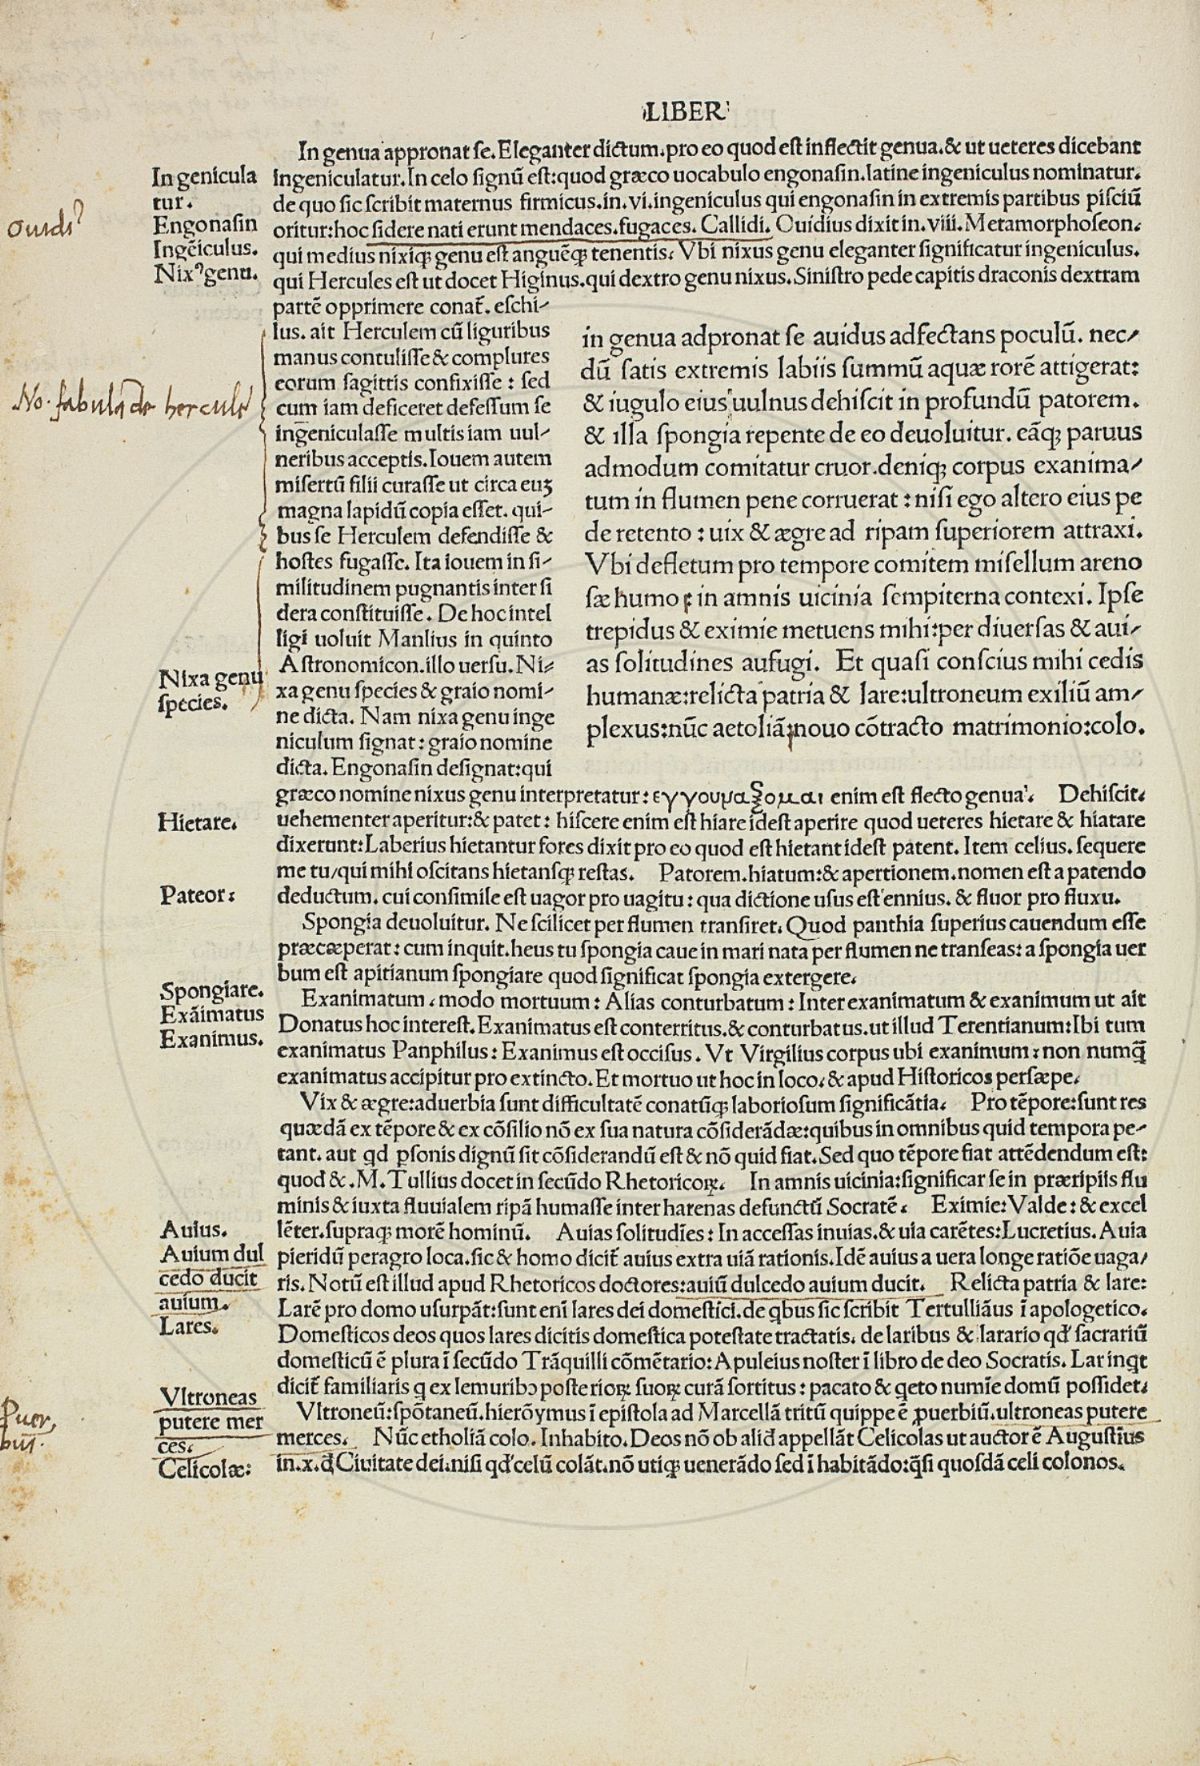 LIBER
In genua appronat se. Eleganter dictum. pro eo quod est inflectit genua. & ut ueteres dicebant
ingeniculatur. In celo signū est: quod græco uocabulo engonasin. latine ingeniculus nominatur.
de quo sic scribit maternus firmicus. in. vi. ingeniculus qui engonasin in extremis partibus pisciū
oritur: hoc sidere nati erunt mendaces. fugaces. Callidi. Ouidius dixit in. viii. Metamorphoseon.
qui medius nixiq; genu est anguēq; tenentis. Vbi nixus genu eleganter significatur ingeniculus.
qui Hercules est ut docet Higinus. qui dextro genu nixus. Sinistro pede capitis draconis dextram
partē opprimere conat̄. eschi-
lus. ait Herculem cū liguribus
manus contulisse & complures
eorum sagittis confixisse: sed
cum iam deficeret defessum se
ingeniculasse multis iam uul-
neribus acceptis. Iouem autem
misertū filii curasse ut circa euꝫ
magna lapidū copia esset. qui-
bus se Herculem defendisse &
hostes fugasse. Ita iouem in si-
militudinem pugnantis inter si
dera constituisse. De hoc intel
ligi uoluit Manlius in quinto
Astronomicon. illo uersu. Ni-
xa genu species & graio nomi-
ne dicta. Nam nixa genu inge
niculum signat: graio nomine
dicta. Engonasin designat: qui
in genua adpronat se auidus adfectans poculū. nec-
dū satis extremis labiis summū aquæ rorē attigerat:
& iugulo eius uulnus dehiscit in profundū patorem.
& illa spongia repente de eo deuoluitur. eāq; paruus
admodum comitatur cruor. deniq; corpus exanima-
tum in flumen pene corruerat: nisi ego altero eius pe
de retento: uix & ægre ad ripam superiorem attraxi.
Vbi defletum pro tempore comitem misellum areno
sæ humo in amnis uicinia sempiterna contexi. Ipse
trepidus & eximie metuens mihi: per diuersas & aui-
as solitudines aufugi. Et quasi conscius mihi cedis
humanæ: relicta patria & lare: ultroneum exiliū am-
plexus: nūc aetoliā: nouo cōtracto matrimonio: colo.
græco nomine nixus genu interpretatur: εγγουμαζομαι enim est flecto genua. Dehiscit.
uehementer aperitur: & patet: hiscere enim est hiare idest aperire quod ueteres hietare & hiatare
dixerunt: Laberius hietantur fores dixit pro eo quod est hietant idest patent. Item celius. sequere
me tu/ qui mihi oscitans hietansq; restas. Patorem. hiatum: & apertionem. nomen est a patendo
deductum. cui consimile est uagor pro uagitu: qua dictione usus est ennius. & fluor pro fluxu.
Spongia deuoluitur. Ne scilicet per flumen transiret. Quod panthia superius cauendum esse
præcæperat: cum inquit. heus tu spongia caue in mari nata per flumen ne transeas: a spongia uer
bum est apitianum spongiare quod significat spongia extergere.
Exanimatum. modo mortuum: Alias conturbatum: Inter exanimatum & exanimum ut ait
Donatus hoc interest. Exanimatus est conterritus. & conturbatus. ut illud Terentianum: Ibi tum
exanimatus Panphilus: Exanimus est occisus. Vt Virgilius corpus ubi exanimum: non numq̄
exanimatus accipitur pro extincto. Et mortuo ut hoc in loco. & apud Historicos persæpe.
Vix & ægre: aduerbia sunt difficultatē conatūq; laboriosum significātia. Pro tēpore: sunt res
quædā ex tēpore & ex cōsilio nō ex sua natura cōsiderādæ: quibus in omnibus quid tempora pe-
tant. aut qd ꝑsonis dignū sit cōsiderandū est & nō quid fiat. Sed quo tēpore fiat attēdendum est:
quod & .M. Tullius docet in secūdo Rhetoricoꝝ. In amnis uicinia: significat se in præripiis flu
minis & iuxta fluuialem ripā humasse inter harenas defunctū Socratē. Eximie: Valde: & excel
lēter. supraq; morē hominū. Auias solitudīes: In accessas inuias. & uia carētes: Lucretius. Auia
pieridū peragro loca. sic & homo dicit̄ auius extra uiā rationis. Idē auius a uera longe ratiōe uaga/
ris. Notū est illud apud Rhetoricos doctores: auiū dulcedo auium ducit. Relicta patria & lare:
Larē pro domo usurpāt: sunt enī lares dei domestici. de qbus sic scribit Tertulliāus ī apologetico.
Domesticos deos quos lares dicitis domestica potestate tractatis. de laribus & larario qd sacrariū
domesticū ē plura ī secūdo Trāquilli cōmētario: Apuleius noster ī libro de deo Socratis. Lar inqt
dicit̄ familiaris q ex lemuribꝰ posterioꝝ suoꝝ curā sortitus: pacato & qeto numīe domū possidet.
Vltroneū: spōtaneū. hierōymus ī epistola ad Marcellā tritū quippe ē ꝓuerbiū. ultroneas putere
merces. Nūc etholiā colo. Inhabito. Deos nō ob aliđ appellāt Celicolas ut auctor ē Augustīus
in. x. đ Ciuitate dei. nisi qđ celū colāt. nō utiq; uenerādo sed ī habitādo: q̄si quosdā celi colonos.
In genicula
tur.
Engonasin
Ingēiculus.
Nixꝰ genu.
Nixa genu
species.
Hietare.
Pateor:
Spongiare.
Exāimatus
Exanimus.
Auius.
Auium dul
cedo ducit
auium.
Lares.
Vltroneas
putere mer
ces.
Celicolæ:
ouidiꝰ
No. fabulā de hercule